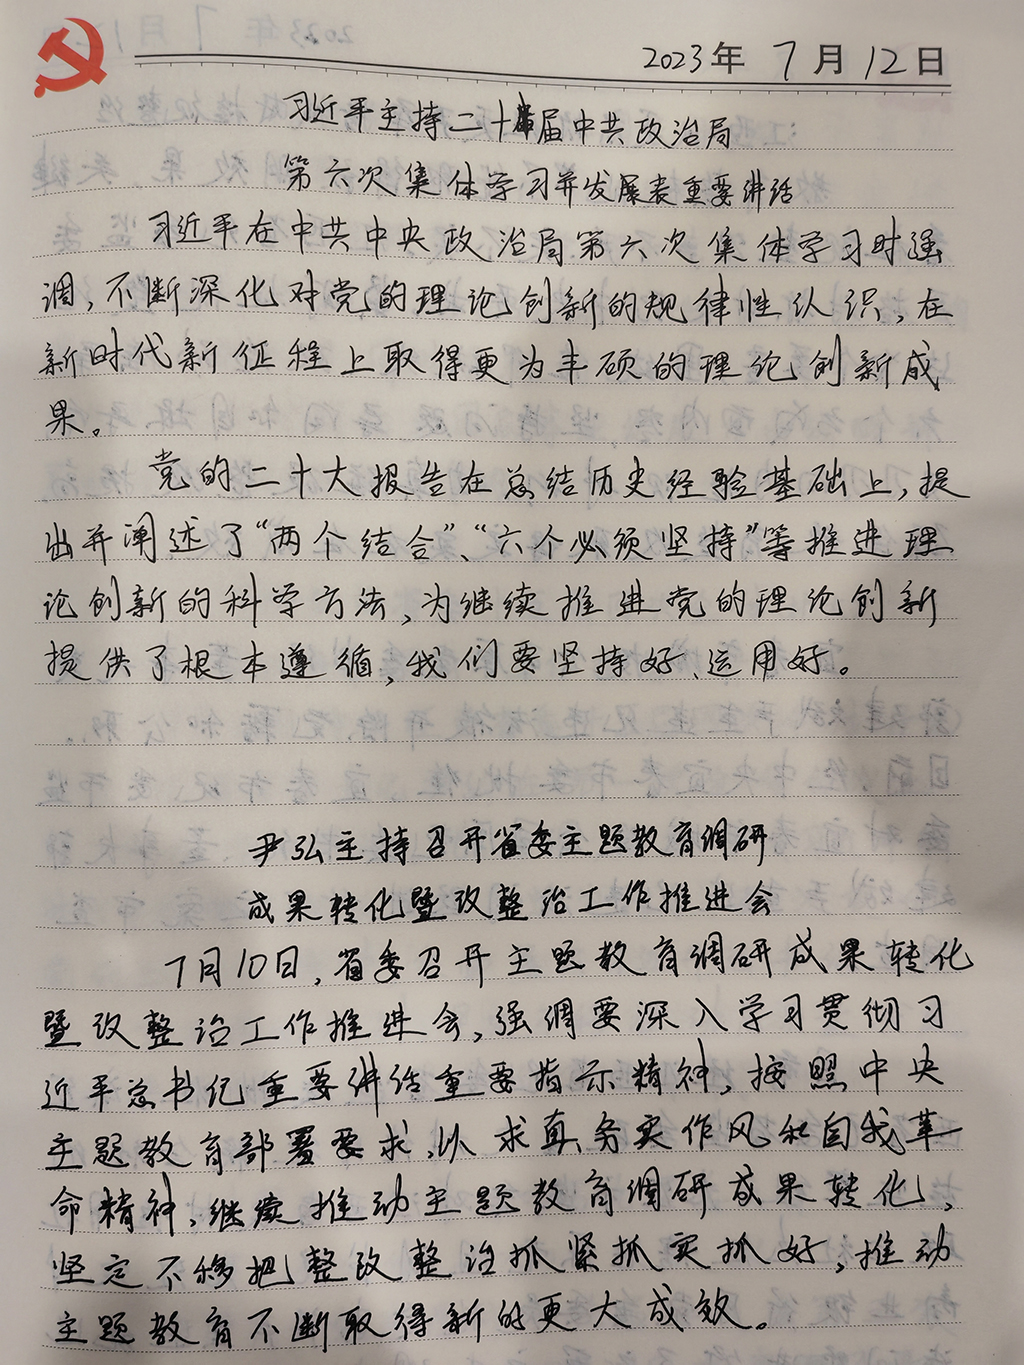 2023年 7月 12日
习近平主持二十届中共政治局
第六次集体学习并发展表重要讲话
习近平在中共中央政治局第六次集体学习时强
调,不断深化对党的理论创新的规律性认识,在
新时代新征程上取得更为丰硕的理论创新成
果。
党的二十大报告在总结历史经验基础上,提
出并阐述了“两个结合”、“六个必须坚持”等推进理
论创新的科学方法,为继续推进党的理论创新
提供了根本遵循,我们要坚持好、运用好。
尹弘主持召开省委主题教育调研
成果转化暨改整治工作推进会
7月10日,省委召开主题教育调研成果转化
暨改整治工作推进会,强调要深入学习贯彻习
近平总书记重要讲话重要指示精神,按照中央
主题教育部署要求,以求真务实作风和自我革
命精神,继续推动主题教育调研成果转化,
坚定不移把整改整治抓紧抓实抓好,推动
主题教育不断取得新的更大成效。